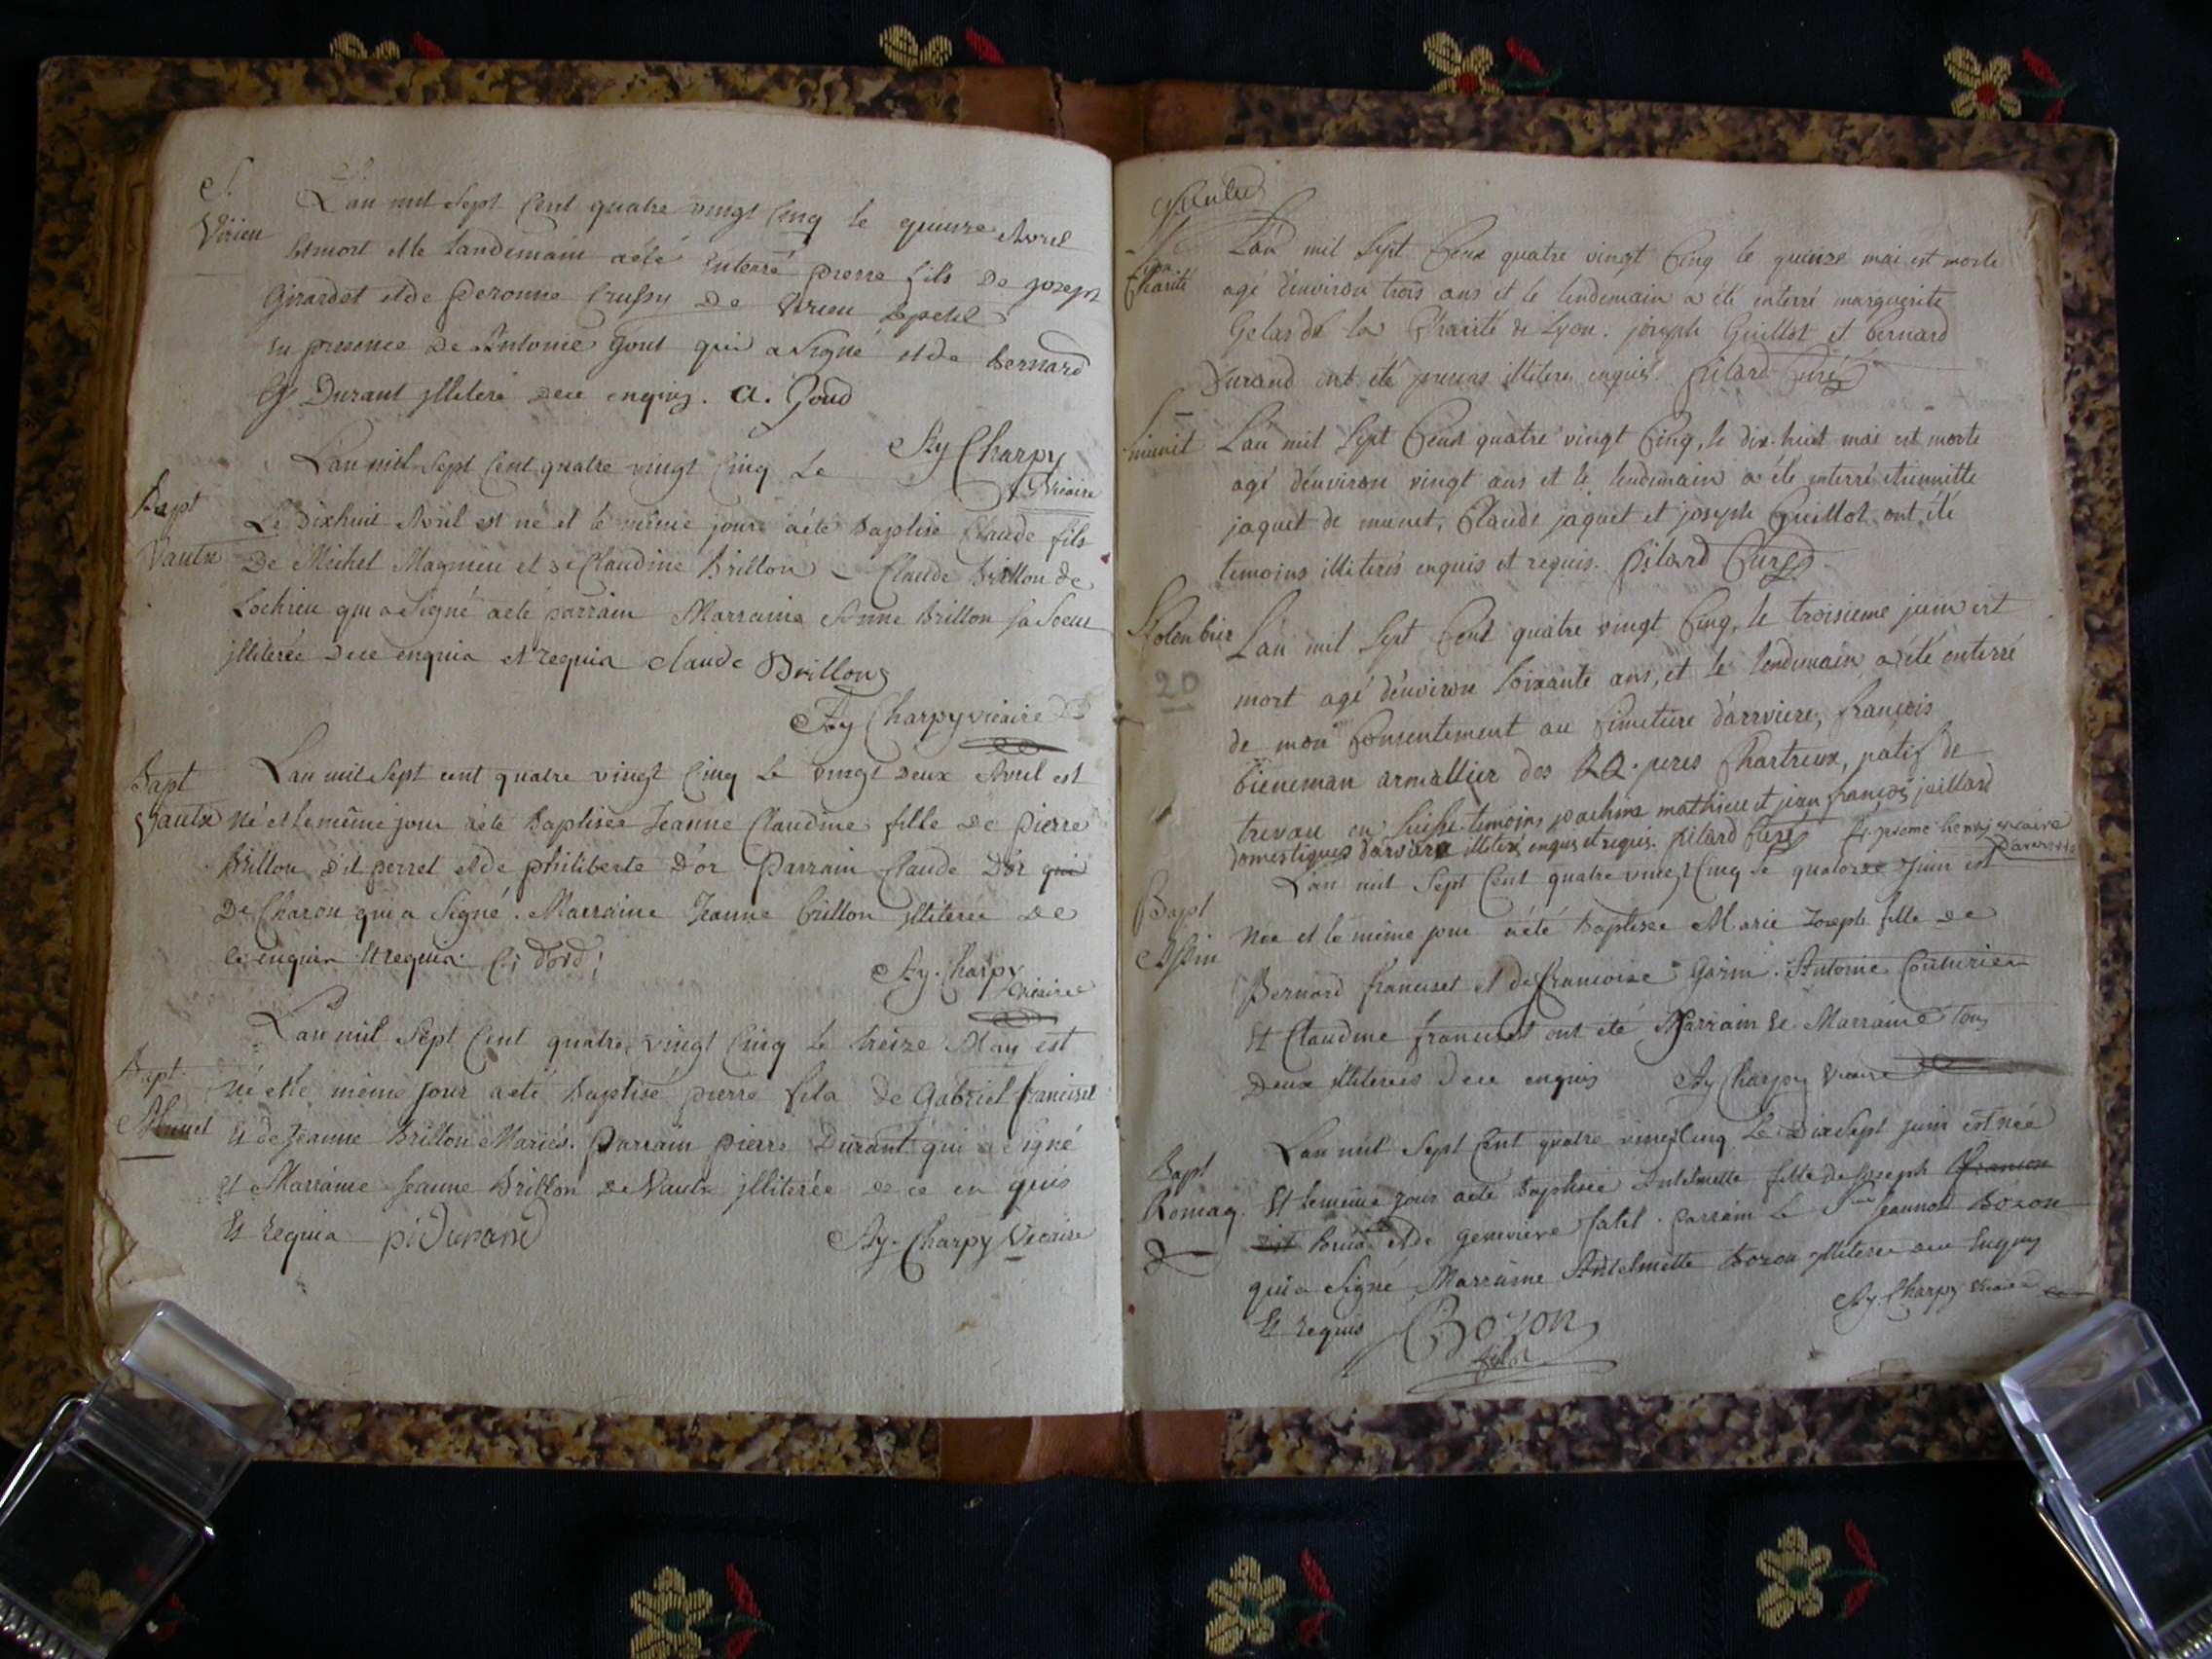 S.
Virieu
L'an mil sept Cent quatre vingt Cinq le quinze Avril
est mort et le landemain aété Enterré pierre fils De joseph
Girardet et de Peronne Crussy De Virieu lepetit
En presence De Antoine Gout qui a signé et de Bernard
Durant jlliteré dece enquis. a. Goud
L'an mil sept Cent quatre vingt Cinq Le
Ay Charpy
Vicaire
Bapt
Vaux
Le Dixhuit Avril est né et le même jour aété Baptisé Claude fils
De Michel Magnieu et de Claudine Brillon - Claude Brillon de
Lochieu qui a signé aeté parrain Marraine Anne Brillon sa Soeur
jlliterée Dece enquis et requis claude Brillon
Ay Charpy vicaire
Bapt
Vaux
L'an mil sept cent quatre vingt Cinq Le vingt deux Avril est
né et le même jour aété Baptisée Jeanne Claudine fille De Pierre
Brillon dit perret et de philiberte D'or Parrain Claude D'or qui
De Charon qui a signé. Marraine Jeanne Brillon jlliterée De
Ce enquis et requis C; dord;
Ay. Charpy
vicaire
L'an mil sept Cent quatre vingt Cinq Le treize May est
Bapt.
Munet
né et le même jour aeté baptisé pierre fils de Gabriel franciset
Et de Jeanne Brillon Mariés. Parrain pierre Durant qui a signé
Et Marraine Jeanne Brillon De Vaux jlliterée de ce en quis
Et Requis p: Durand
Ay. Charpy Vicaire
Charité
L'an mil sept Cent quatre vingt Cinq le quinze mai est morte
agé d'environ trois ans et le lendemain a été enterré marguerite
Gelas de la Charité de Lyon. joseph Guillot et bernard
Durand ont été presens illiteres enquis. Pilard Curé
munet
L'an mil sept Cent quatre vingt Cinq, le dix-huit mai est morte
agé d'environ vingt ans et le lendemain a été enterré etiennette
jaquet de munet, Claude jaquet et joseph Guillot ont été
temoins illiterés enquis et requis. Pilard Curé
20
L'an mil sept Cent quatre vingt Cinq, le troisieme juin est
mort agé d'environ soixante ans, et le lendemain a été enterré
de mon Consentement au Cimetiere d'arviere, françois
bieneman armallier des RR. peres Chartreux, natif de
trevau en suisse. temoins joachim mathieu et jean françois juillard
domestiques d'arviere illiterés enquis et requis. Pilard Curé
L'an mil sept Cent quatre vingt Cinq le quatorze Juin est
Bapt
Assin
née et le même jour aété baptisée Marie Joseph fille de
Bernard franciset et de francoise Garin. Antoine Couturier
Et Claudine franciset ont été Parrain Et Marraine tous
Deux jlliterés Dece enquis Ay Charpy Vicaire
L'an mil sept Cent quatre vingt Cinq Le Dix Sept juin est née
Bapt
Romag.
Et le même jour aeté Baptisée Antelmette fille de Joseph
et de genevieve fatel. parrain Le Jeannot Bozon
qui a signé Marraine Antelmette Bozon jlliterée dece Enquis
Et requis Bozon
fils
Ay. Charpy Vicaire